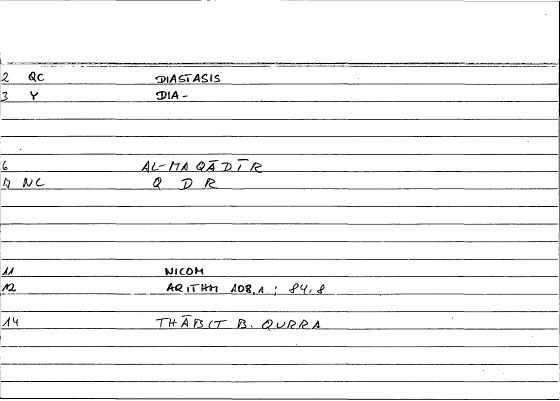 2 QC DIASTASIS
3 Y DIA-
6 AL-MAQĀDĪR
NC Q D R
11 NICOM
12 ARITHM 108,1 ; 84.8
14 THĀBIT B. QURRA